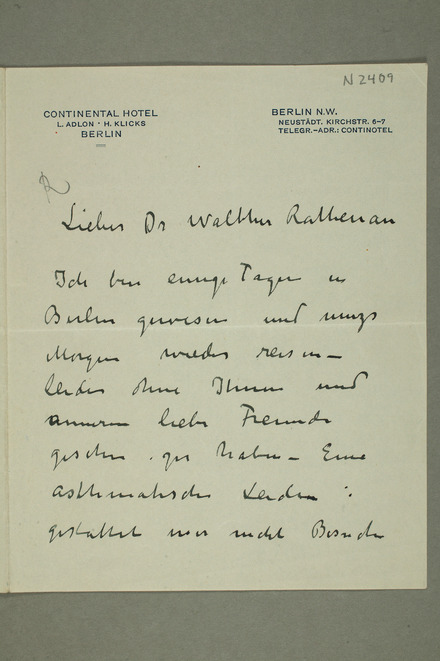 N 2409
CONTINENTAL HOTEL
L. ADLON · H. KLICKS
BERLIN
BERLIN N.W.
NEUSTÄDT. KIRCHSTR. 6-7
TELEGR.-ADR.: CONTINOTEL
R
Lieber Dr Walther Rathenau
Ich bin einige Tagen in
Berlin gewesen und muss
Morgen wieder reisen –
leider ohne Ihnen und
anderen liebe Freunde
gesehen zu haben – Eine
asthmatische Leiden
gestattet mir nicht Besuche